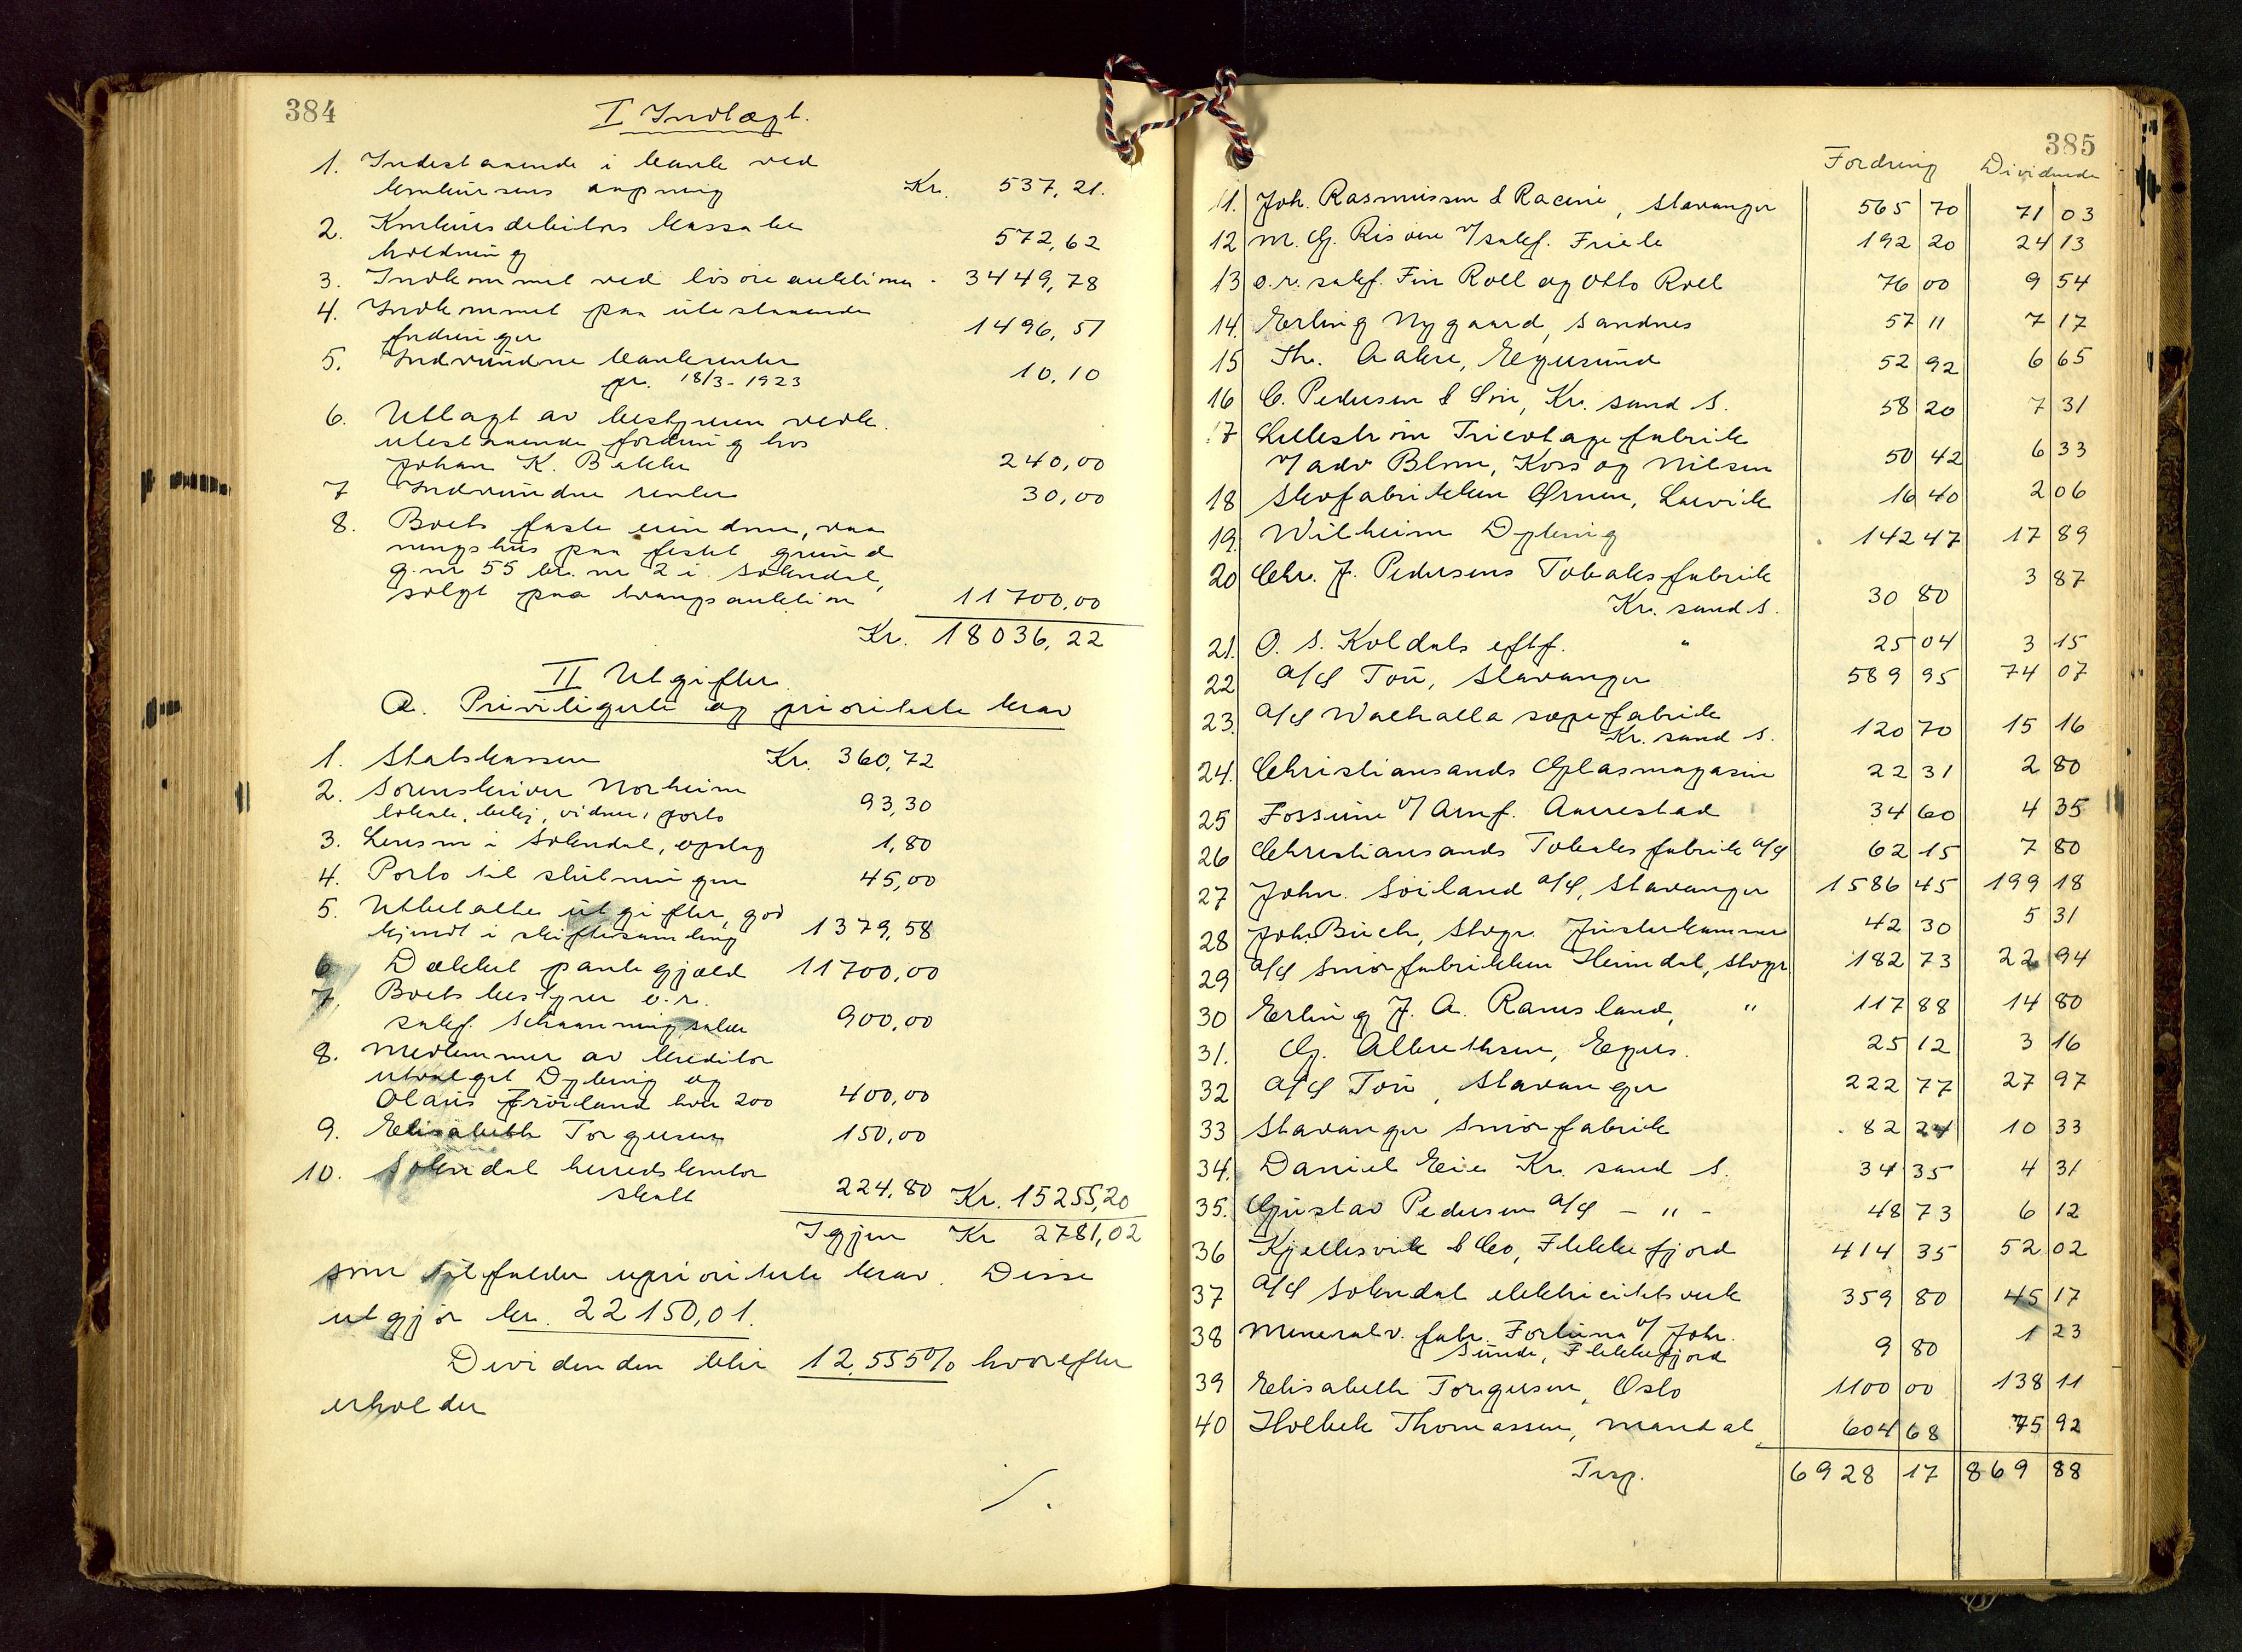 384
I Indtægt.
1. Indestaaende i bank ved
konkursens aapning Kr. 537,21.
2. Konkursdebitors kassabe
holdning 572,62
3. Indkommet ved løsøreauktionen - 3449,78
4. Indkommet paa utestaaende
fordringer 1496,51
5. Indvundne bankrenter
pr. 18/3-1923 10,10
6. Utlagt av bestyreren vedk.
utestaaende fordring hos
Johan K. Bakke 240,00
7 Indvundne renter 30,00
8. Boets faste eiendom, vaa
ningshus paa festet grund
g.nr 55 br. nr 2 i Sokndal,
solgt paa tvangsauktion 11700,00
Kr. 18036,22
II Utgifter
A. Priviligerte og prioriterte krav
1. Statskassen Kr. 360,72
2. Sorenskriver Norheim
lokale, bekj, vidner, porto 93,30
3. Lensm i Sokndal, opslag 1,80
4. Porto til slutningen 45,00
5. Utbetalte utgifter, god
kjendt i skiftesamling 1379,58
6 Dækket pantegjæld 11700,00
7. Boets bestyrer o.r.
sakf. Schanning, salær 900,00
8. Medlemmer av kreditor
utvalget Dybing og
Olaus Frøiland hver 200 400,00
9. Elisabeth Torgersen 150,00
10. Sokndal herredskontor
skatt 224,80 Kr. 15255,20
Igjen Kr 2781,02
som tilfalder uprioriterte krav. Disse
utgjør kr. 22150,01.
Dividenden blir 12,555% hvorefter
erholder
/.
385
Fordring Dividende
11. Joh. Rasmussen & Racine, Stavanger 565 70 71 03
12 M. G. Risøen v/sakf. Friele 192 20 24 13
13 o.r. sakf. Finn Roll og Otto Roll 76 00 9 54
14. Erling Nygaard, Sandnes 57 11 7 17
15 Th. Aakre, Egersund 52 92 6 65
16 C. Pedersen & Søn, Kr. sand S. 58 20 7 31
17 Lillestrøm Tricotage fabrik
v/adv Blom, Koss og Nilsen 50 42 6 33
18 Skofabrikken Ørnen, Larvik 16 40 2 06
19. Wilhelm Dybing 142 47 17 89
20 Chr. J. Pedersens Tobaksfabrik
Kr. sand S. 30 80 3 87
21. O. S. Koldals eftf. " 25 04 3 15
22 A/S Tou, Stavanger 589 95 74 07
23. A/S Walhalla sæpefabrik
Kr. sand S. 120 70 15 16
24. Christiansands Glasmagasin 22 31 2 80
25 Fossum v/ Arnf. Aarrestad 34 60 4 35
26 Christiansands Tobaksfabrik A/S 62 15 7 80
27 John. Søiland A/S, Stavanger 1586 45 199 18
28 Joh. Buch, Stvgr. Justerkammer 42 30 5 31
29 A/S Smørfabrikken Heimdal, Stvgr. 182 73 22 94
30 Erling J. A. Ramsland, " 117 88 14 80
31. G. Albrethsen, Egers. 25 12 3 16
32 A/S Tou, Stavanger 222 77 27 97
33 Stavanger Smørfabrik 82 24 10 33
34. Daniel Eie Kr. sand S. 34 35 4 31
35. Gustav Pedersen A/S - " - 48 73 6 12
36 Kjellesvik & Co, Flekkefjord 414 35 52 02
37 A/S Sokndal elektricitetsverk 359 80 45 17
38 Mineralv. fabr. Fortuna v/ Johr.
Sunde, Flekkefjord 9 80 1 23
39 Elisabeth Torgersen, Oslo 1100 00 138 11
40 Holbek Thomassen, Mandal 604 68 75 92
Trsp. 6928 17 869 88